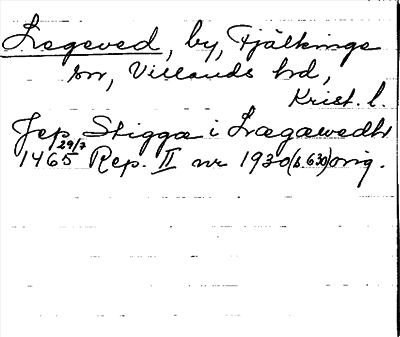 Lregeved, by, Fjälkinge
sn, Villands hd,
Krist. l.
Jep Stiggæ i Lrægæwedh
29/7
1465 Rep. II nr 1930 (s. 630) orig.